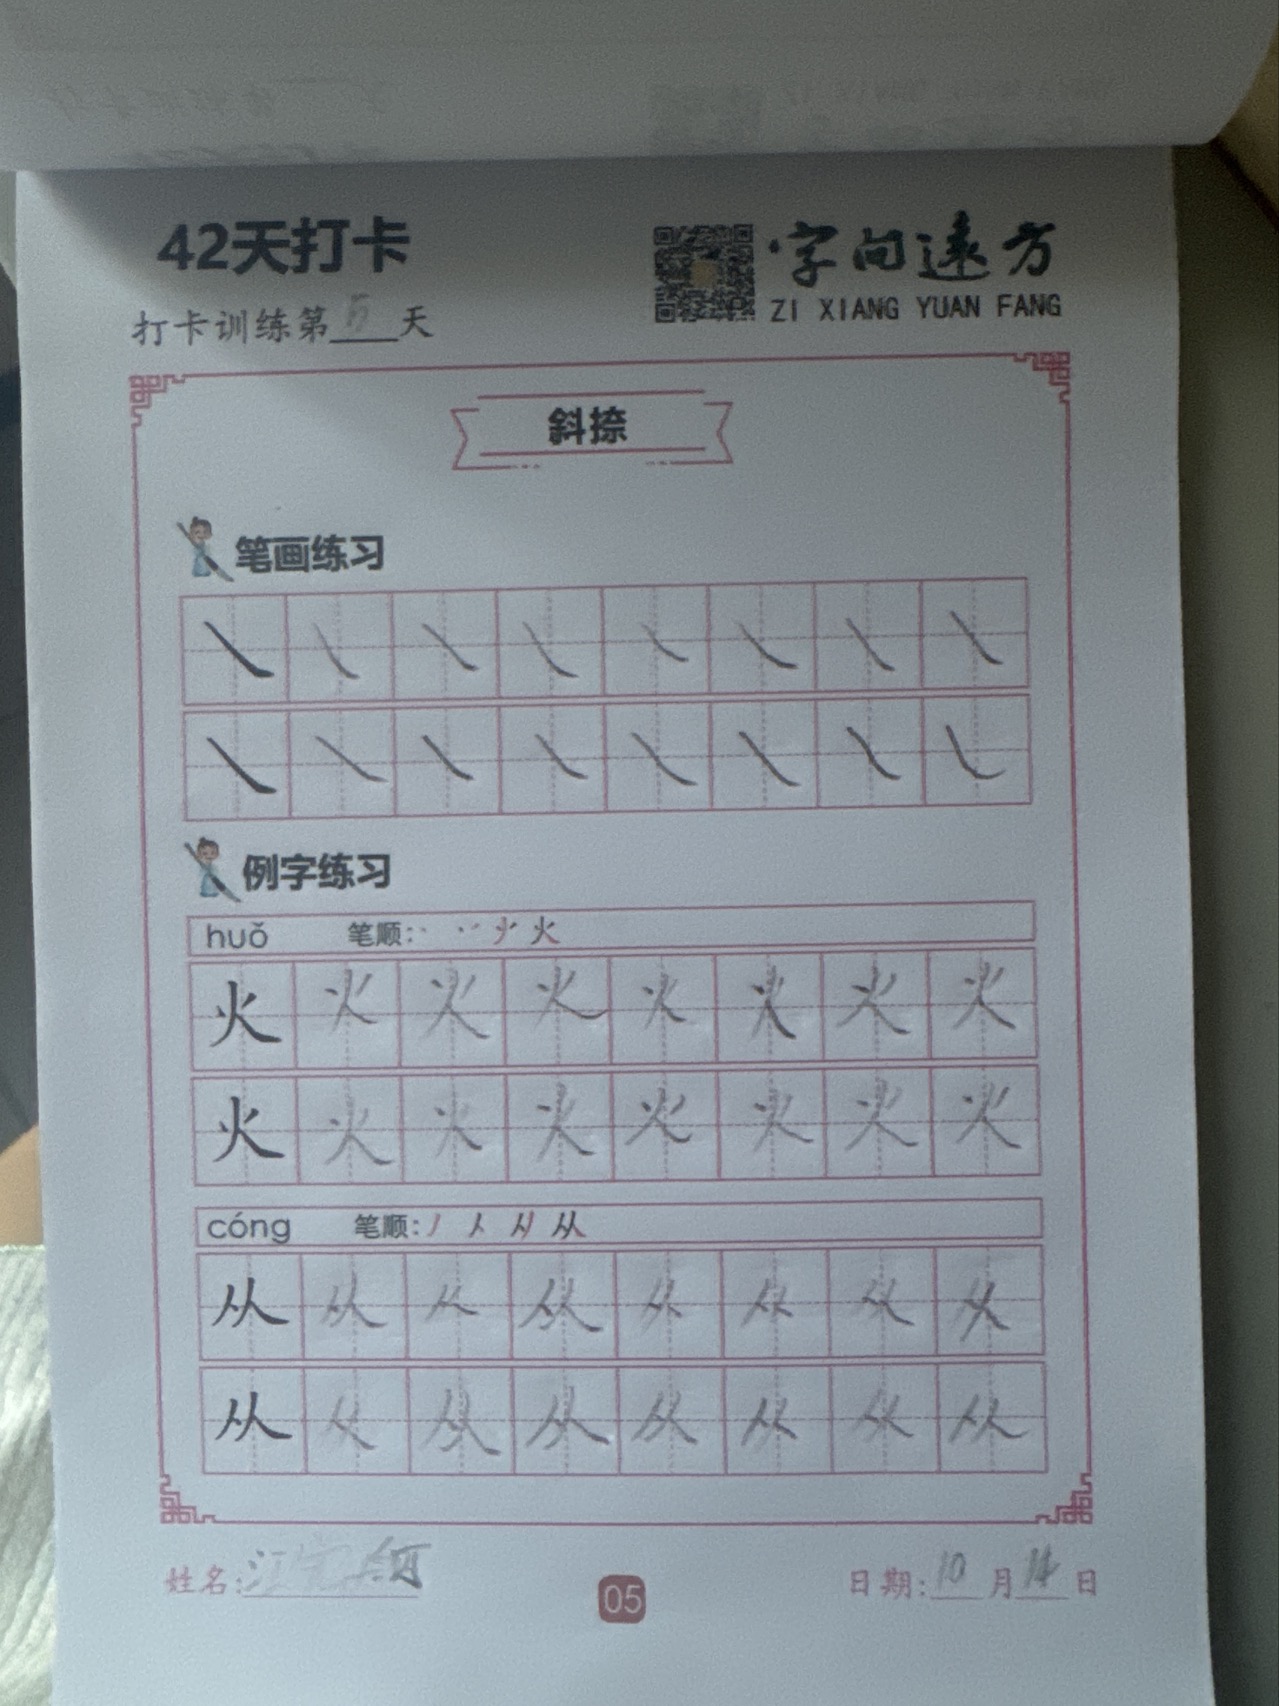 42天打卡
字向远方
ZI XIANG YUAN FANG
打卡训练第5天
斜捺
笔画练习
例字练习
huǒ 笔顺: 火
火 火 火 火 火 火 火 火
火 火 火 火 火 火 火 火
cóng 笔顺: 丿 人 从
从 从 从 从 从 从 从 从
从 从 从 从 从 从 从 从
姓名: 江
05
日期: 10月14日